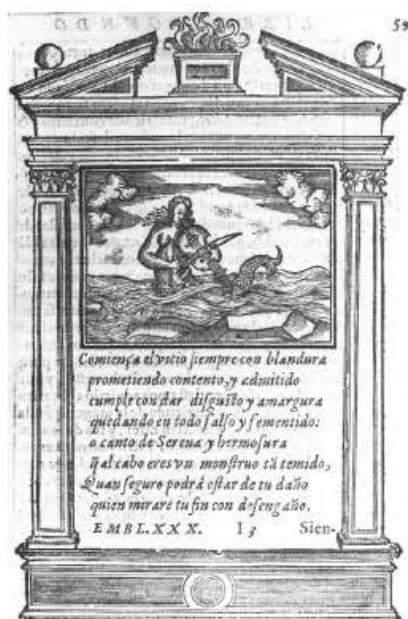 59
Comiença el vicio siempre con blandura
prometiendo contento, y admitido
cumple con dar disgusto y amargura
quedando en todo falso y fementido:
o canto de Serena y hermosura
q̃ al cabo eres vn monstruo tã temido,
Quan seguro podrá estar de tu daño
quien mirare tu fin con desengaño.
EMBL. XXX. I 3 Sien-